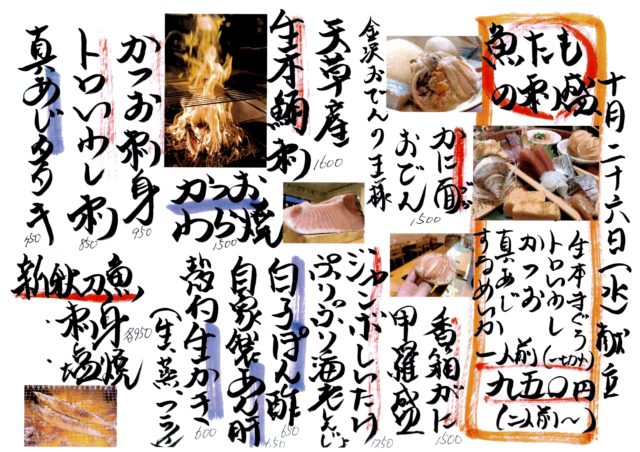 十月二十六日(水)献立
魚たも
の刺盛
生本まぐろ
トロいわし
かつお
真あじ
するめいか
一人前(一切れ)
九五〇円
(二人前〜)
金沢おでんの王様
かに面
おでん
1500
香箱がに
甲羅盛
1500
天草産
生本鮪刺
1600
ジャンボしいたけ
ぷりぷり海老しんじょ
かつお
わら焼
1500
白子ぽん酢
自家製あん肝
650
殻付生かき
(生、蒸、フライ)
600
かつお刺身
950
トロいわし刺
850
真あじ
新秋刀魚
刺身
塩焼
各950